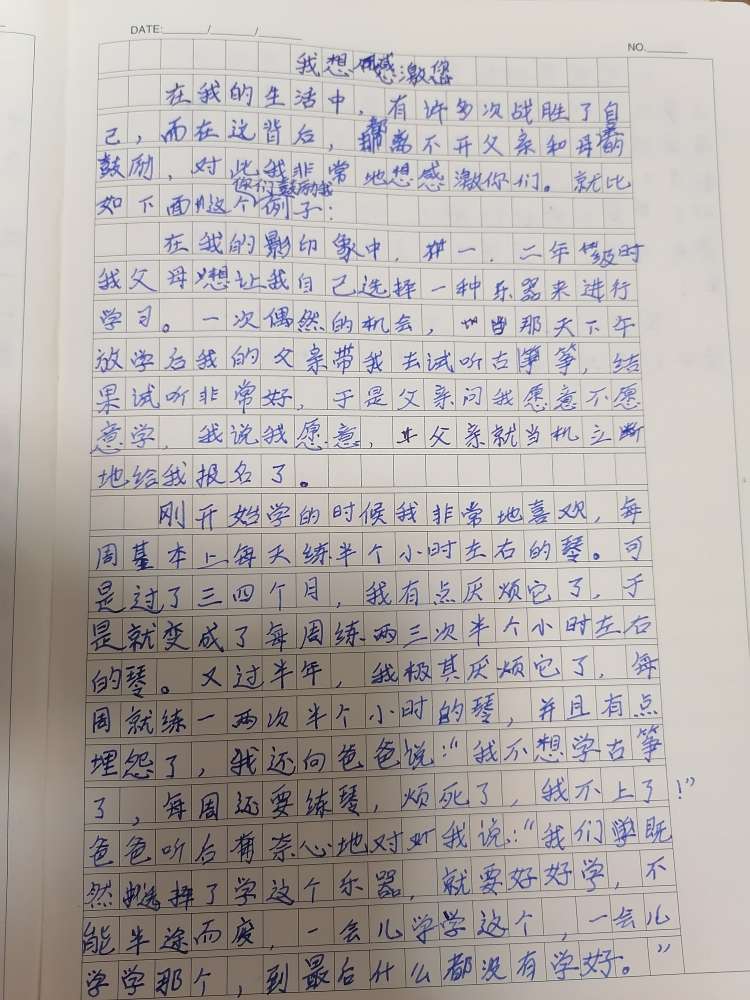 DATE: / /
NO.
我想感激您
在我的生活中，有许多次战胜了自
己，而在这背后，都离不开父亲和母亲的
鼓励，对此我非常地想感激你们。就比
你们鼓励我
如下面这个例子：
在我的影印象中，一、二年级时
我父母想让我自己选择一种乐器来进行
学习。一次偶然的机会，那天下午
放学后我的父亲带我去试听古筝，结
果试听非常好，于是父亲问我愿意不愿
意学，我说我愿意，父亲就当机立断
地给我报名了。
刚开始学的时候我非常地喜欢，每
周基本上每天练半个小时左右的琴。可
是过了三四个月，我有点厌烦它了，于
是就变成了每周练两三次半个小时左右
的琴。又过半年，我极其厌烦它了，每
周就练一两次半个小时的琴，并且有点
埋怨了，我还向爸爸说：“我不想学古筝
了，每周还要练琴，烦死了，我不上了！”
爸爸听后耐心地对我说：“我们既
然选择了学这个乐器，就要好好学，不
能半途而废，一会儿学学这个，一会儿
学学那个，到最后什么都没有学好。”